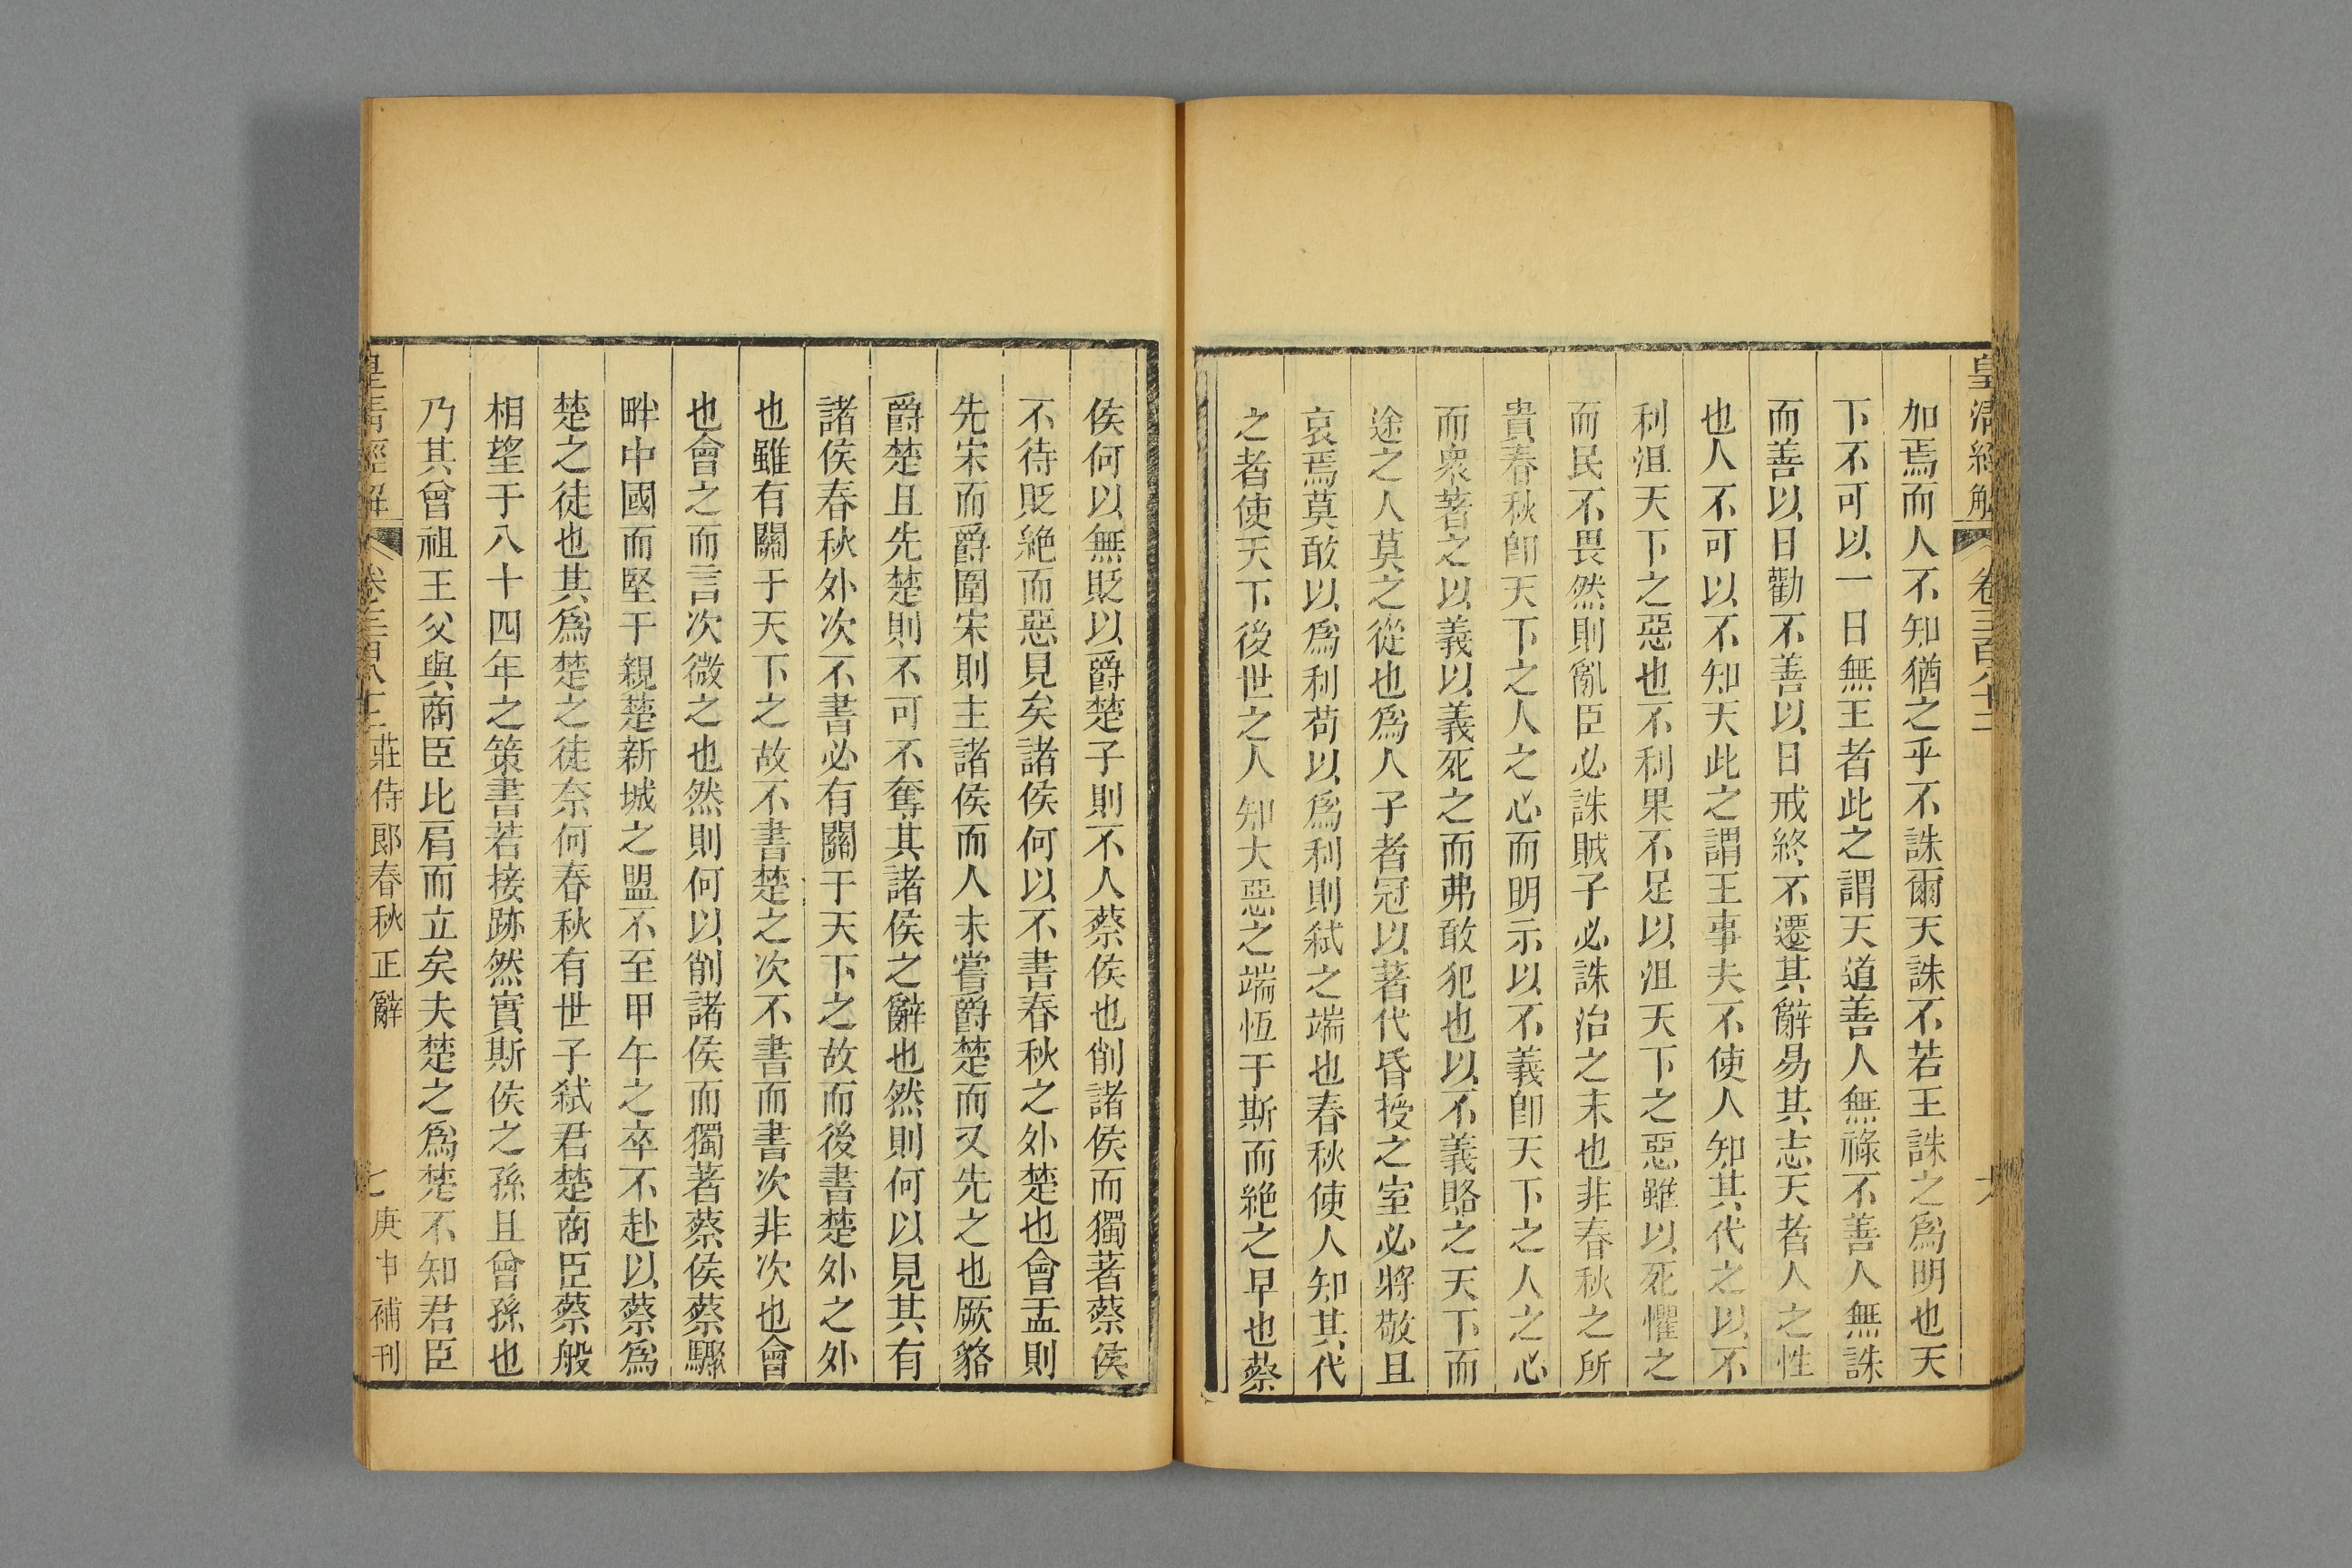 皇清經解
卷三百八十二
六
加焉而人不知猶之乎不誅爾天誅不若王誅之爲明也天
下不可以一日無王者此之謂天道善人無祿不善人無誅
而善以日勸不善以日戒終不遷其辭易其志天者人之性
也人不可以不知天此之謂王事夫不使人知其代之以不
利沮天下之惡也不利果不足以沮天下之惡雖以死懼之
而民不畏然則亂臣必誅賊子必誅治之末也非春秋之所
貴春秋卽天下之人之心而明示以不義卽天下之人之心
而衆著之以義以義死之而弗敢犯也以不義賂之天下而
途之人莫之從也爲人子者冠以著代昏授之室必將敬且
哀焉莫敢以爲利苟以爲利則弑之端也春秋使人知其代
之者使天下後世之人知大惡之端恆于斯而絕之早也蔡
侯何以無貶以爵楚子則不人蔡侯也削諸侯而獨著蔡侯
不待貶絕而惡見矣諸侯何以不書春秋之外楚也會盂則
先宋而爵圍宋則主諸侯而人未嘗爵楚而又先之也厥貉
爵楚且先楚則不可不奪其諸侯之辭也然則何以見其有
諸侯春秋外次不書必有關于天下之故而後書楚外之外
也雖有關于天下之故不書楚之次不書而書次非次也會
也會之而言次微之也然則何以削諸侯而獨著蔡侯蔡驟
畔中國而堅于親楚新城之盟不至甲午之卒不赴以蔡爲
楚之徒也其爲楚之徒奈何春秋有世子弑君楚商臣蔡般
相望于八十四年之策書若接跡然實斯侯之孫且曾孫也
乃其曾祖王父與商臣比肩而立矣夫楚之爲楚不知君臣
皇清經解
卷三百八十二
莊侍郎春秋正辭
七
庚申補刊